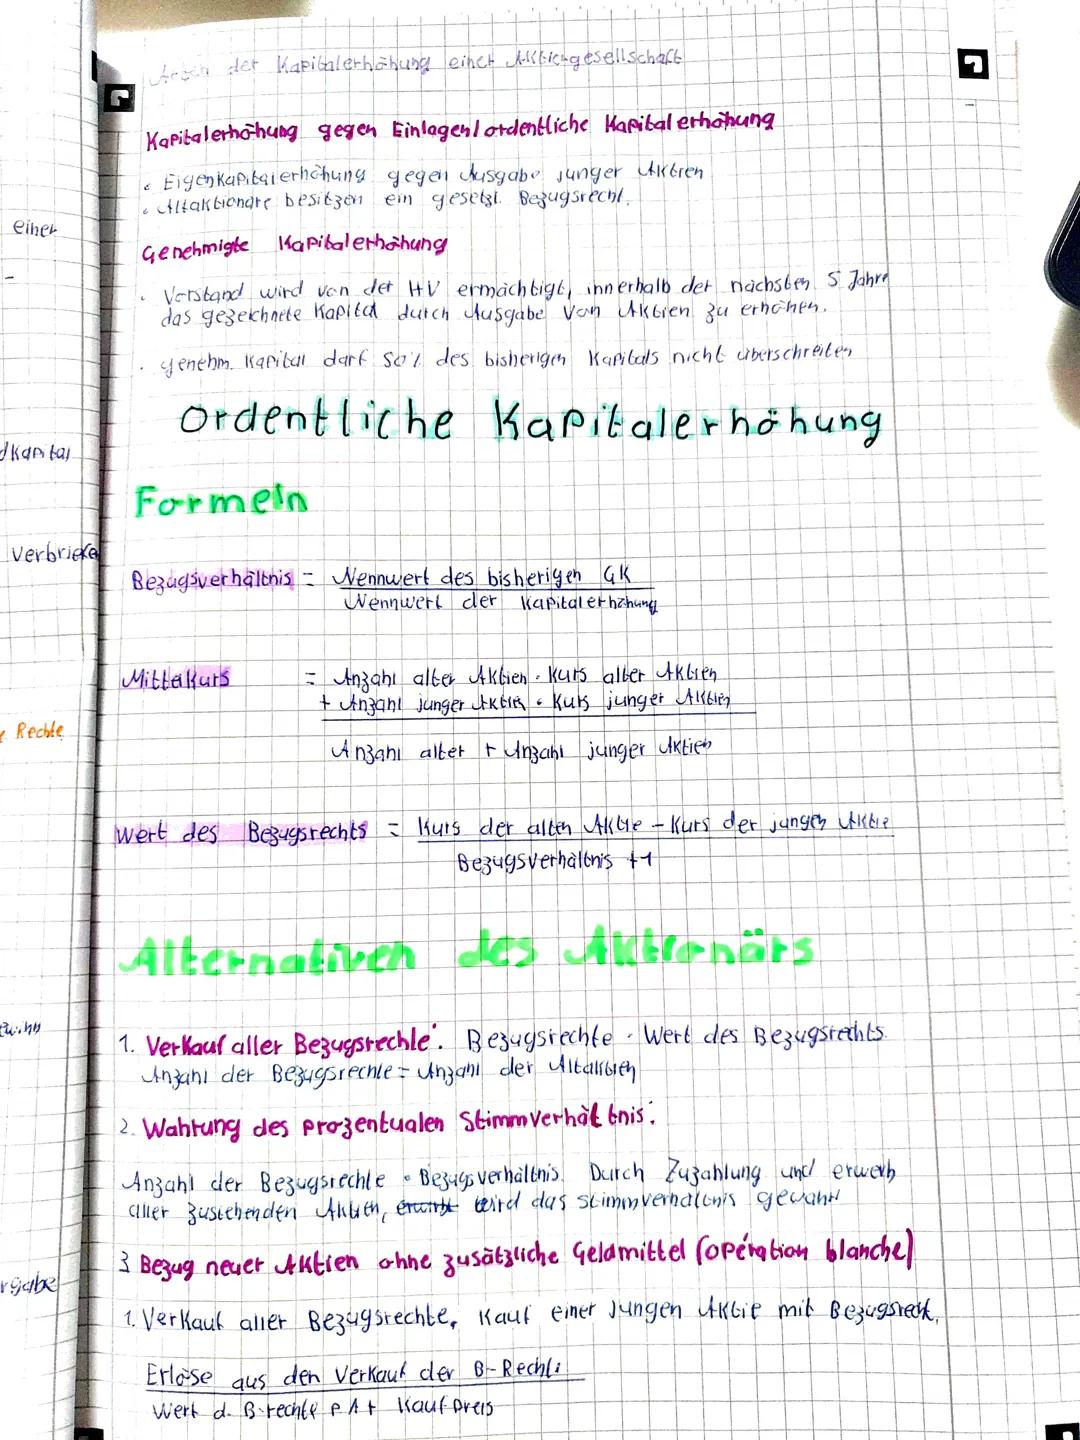 Arten der Kapitalerhöhung einer Aktiengesellschaft
Kapitalerhöhung gegen Einlagen/ordentliche Kapitalerhöhung
• Eigenkapitalerhöhung gegen Ausgabe junger Aktien
• Altaktionäre besitzen ein gesetzl. Bezugsrecht.
einer
Genehmigte Kapitalerhöhung
• Vorstand wird von der HV ermächtigt, innerhalb der nächsten 5 Jahre
das gezeichnete Kapital durch Ausgabe von Aktien zu erhöhen.
• genehm. Kapital darf 50% des bisherigen Kapitals nicht überschreiten
Ordentliche Kapitalerhöhung
dkapital
Formeln
verbriefe
Bezugsverhältnis = Nennwert des bisherigen GK
Nennwert der Kapitalerhöhung
Mittelkurs = Anzahl alter Aktien · Kurs alter Aktien
+ Anzahl junger Aktien · Kurs junger Aktien
Rechte
Anzahl alter + Anzahl junger Aktien
Wert des Bezugsrechts = Kurs der alten Aktie - Kurs der jungen Aktie
Bezugsverhältnis +1
Alternativen des Aktionärs
1. Verkauf aller Bezugsrechte: Bezugsrechte · Wert des Bezugsrechts
Anzahl der Bezugsrechte = Anzahl der Altaktien
2. Wahrung des prozentualen Stimmverhältnis:
Anzahl der Bezugsrechte · Bezugsverhältnis. Durch Zuzahlung und erwerb
aller zustehenden Aktien, erwirbt wird das stimmverhältnis gewahrt
3 Bezug neuer Aktien ohne zusätzliche Geldmittel (opération blanche)
rgabe
1. Verkauf aller Bezugsrechte, Kauf einer jungen Aktie mit Bezugsrecht.
Erlöse aus den Verkauf der B-Rechte
Wert d. B-rechte p A + Kaufpreis